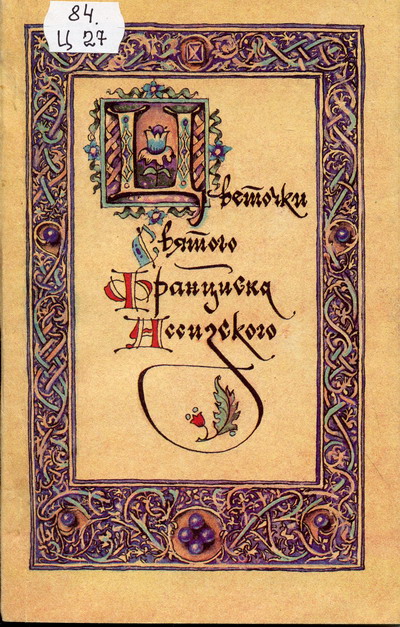 84.
Ц 27
Цветочки
Святого
Франциска
Ассизского